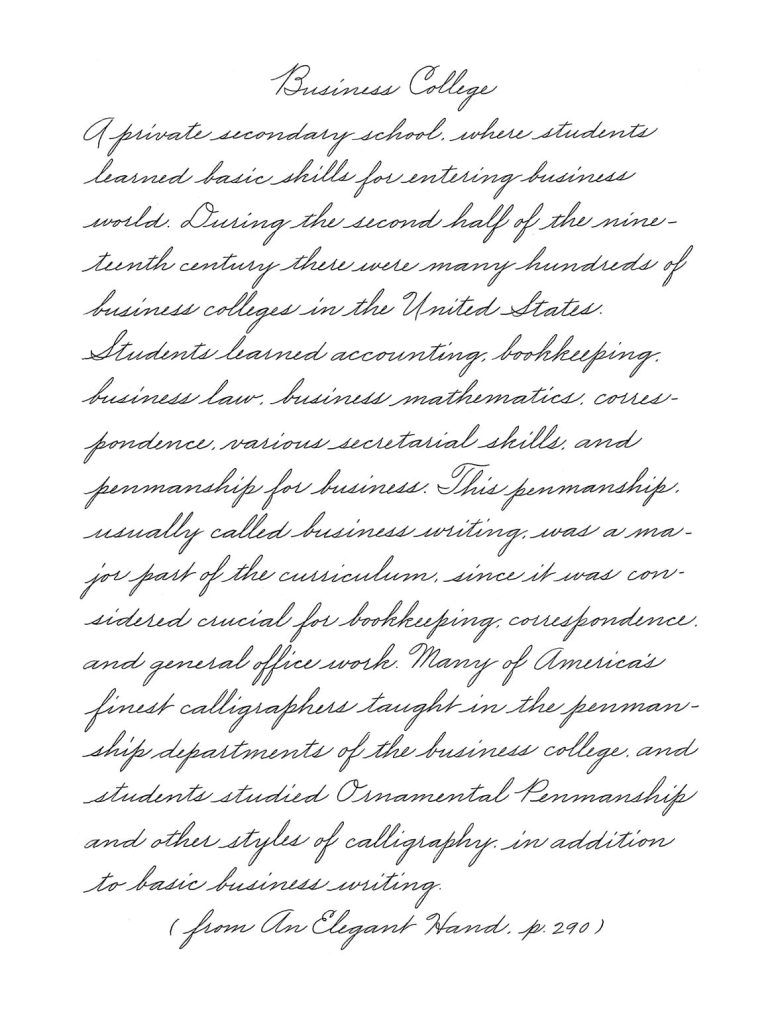 Business College
A private secondary school, where students
learned basic skills for entering business
world. During the second half of the nine-
teenth century there were many hundreds of
business colleges in the United States.
Students learned accounting, bookkeeping,
business law, business mathematics, corres-
pondence, various secretarial skills, and
penmanship for business. This penmanship,
usually called business writing, was a ma-
jor part of the curriculum, since it was con-
sidered crucial for bookkeeping, correspondence,
and general office work. Many of America's
finest calligraphers taught in the penman-
ship departments of the business college, and
students studied Ornamental Penmanship
and other styles of calligraphy, in addition
to basic business writing.
(from An Elegant Hand, p. 290)